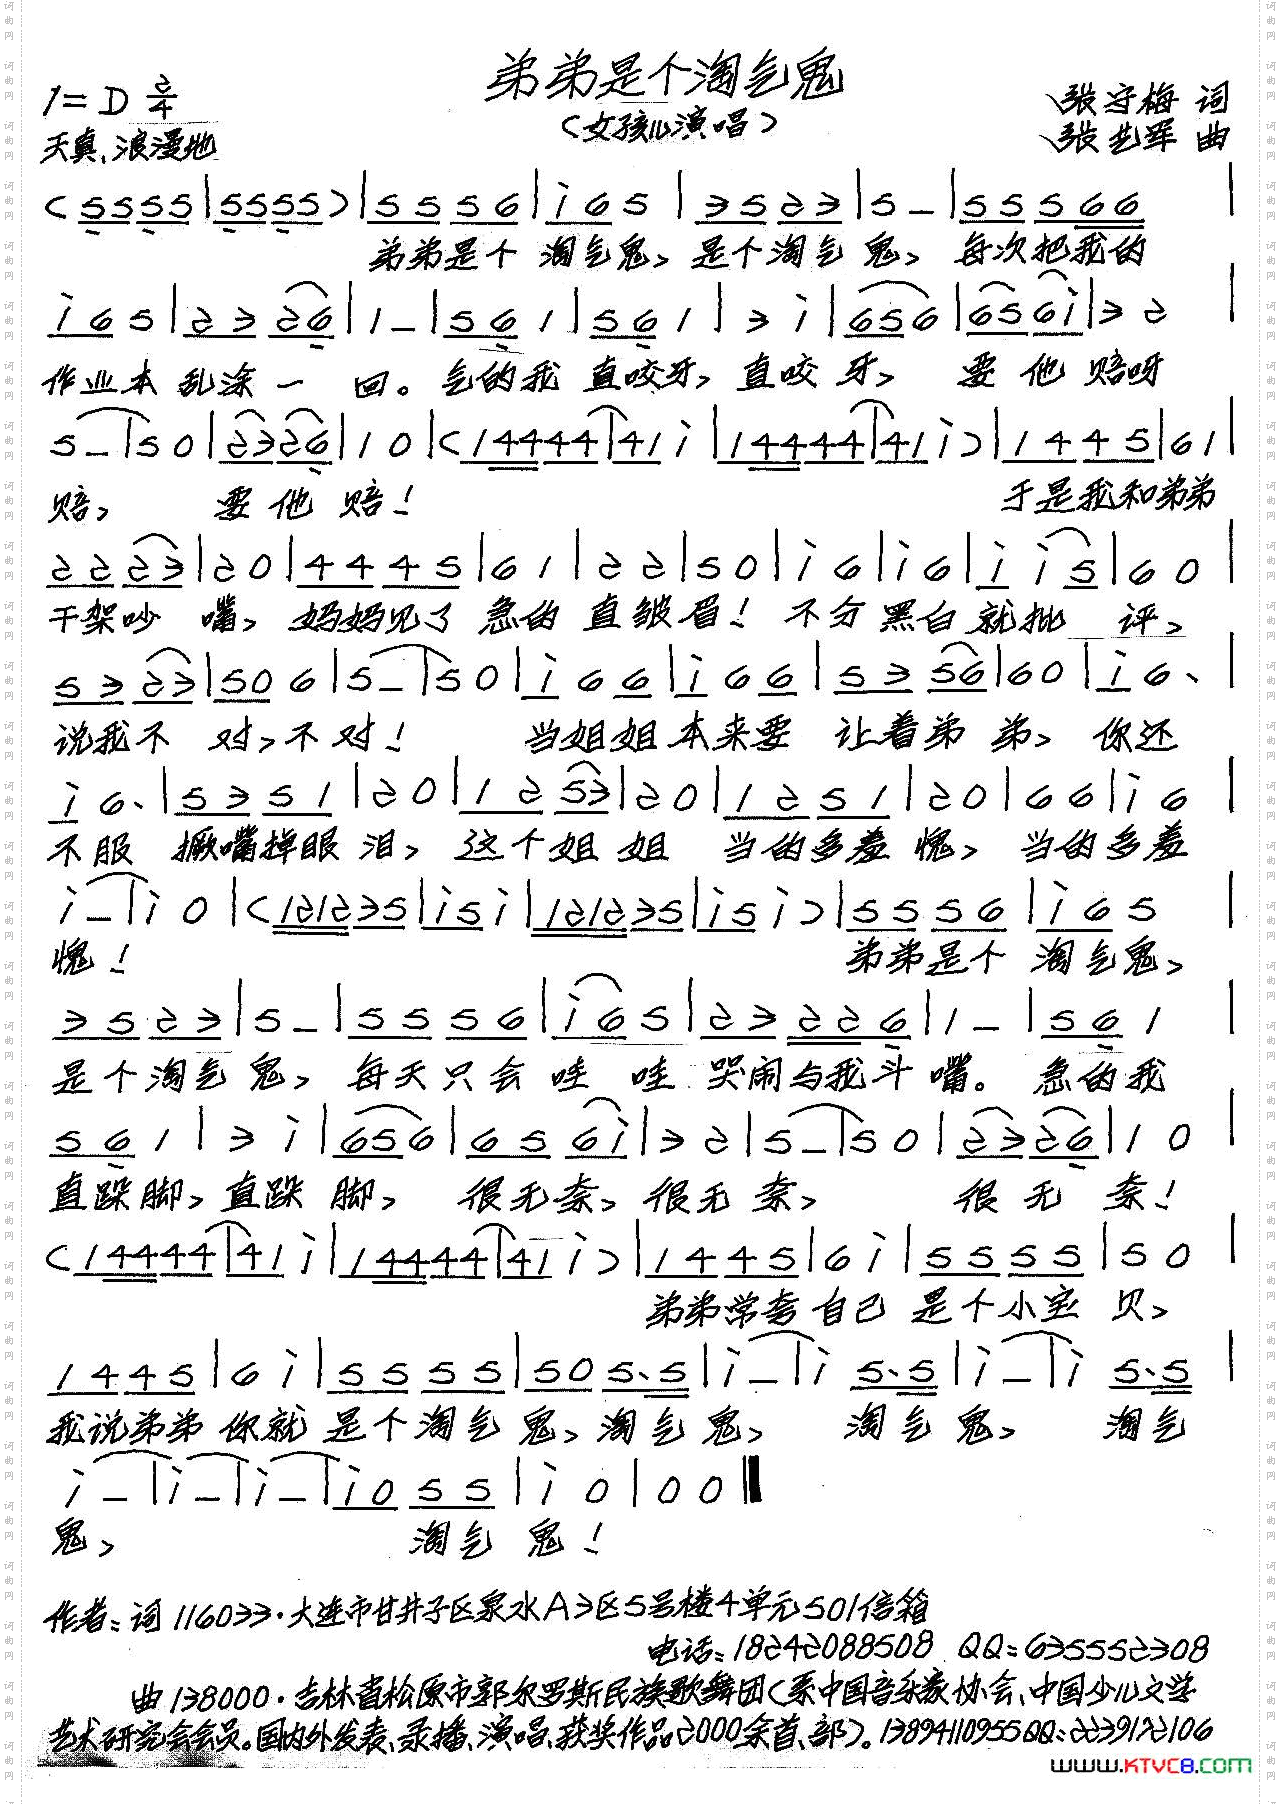 弟弟是个淘气鬼
1=D 2/4
(女孩儿演唱)
张守梅 词
天真、浪漫地
张艺军 曲
(5555|5555)|5556|i65|3523|5-|55566|
弟弟是个 淘气鬼, 是个淘气 鬼, 每次把我的
i65|2326|1-|561|561|3i|656|656i|32
作业本 乱涂一 回。气的我 直咬牙, 直咬 牙, 要 他 赔呀
5-|50|2326|10|(14444|41i|14444|41i)|1445|61|
赔, 要 他 赔! 于是我和弟弟
2223|20|4445|61|22|50|i6|i6|ii5|60|
干架吵 嘴, 妈妈见了 急的 直皱眉! 不分 黑白就批 评,
5323|506|5-|50|i66|i66|5356|60|i6、|
说我不 对,不 对! 当姐姐本来要 让着弟 弟, 你还
i6、|5351|20|1253|20|1251|20|66|i6|
不服 撅嘴掉眼 泪, 这个姐 姐 当的多羞 愧, 当的多羞
i-|i0|(121235|i5i|121235|i5i)|5556|i65|
愧! 弟弟是个 淘气鬼,
3523|5-|5556|i65|23226|1-|561|
是个淘气 鬼, 每天只会 哇 哇 哭闹与我斗 嘴。 急的我
561|3i|656|656i|32|5-|50|2326|10|
直跺脚, 直跺 脚, 很无奈, 很无 奈, 很 无 奈!
(14444|41i|14444|41i)|1445|6i|5555|50|
弟弟常夸 自己 是个小宝 贝,
1445|6i|5555|505、5|i-|i5、5|i-|i5、5|
我说弟弟 你就 是个淘气 鬼, 淘气 鬼, 淘气 鬼, 淘气
i-|i-|i-|i055|i0|00‖
鬼, 淘气 鬼!
作者:词 116033·大连市甘井子区泉水A3区5号楼4单元501信箱
电话:18242088508 QQ:635552308
曲 138000·吉林省松原市郭尔罗斯民族歌舞团(系中国音乐家协会、中国少儿文学
艺术研究会会员。国内外发表、录播、演唱、获奖作品2000余首、部)。13894110955QQ:2239172106
www.KTVC8.com